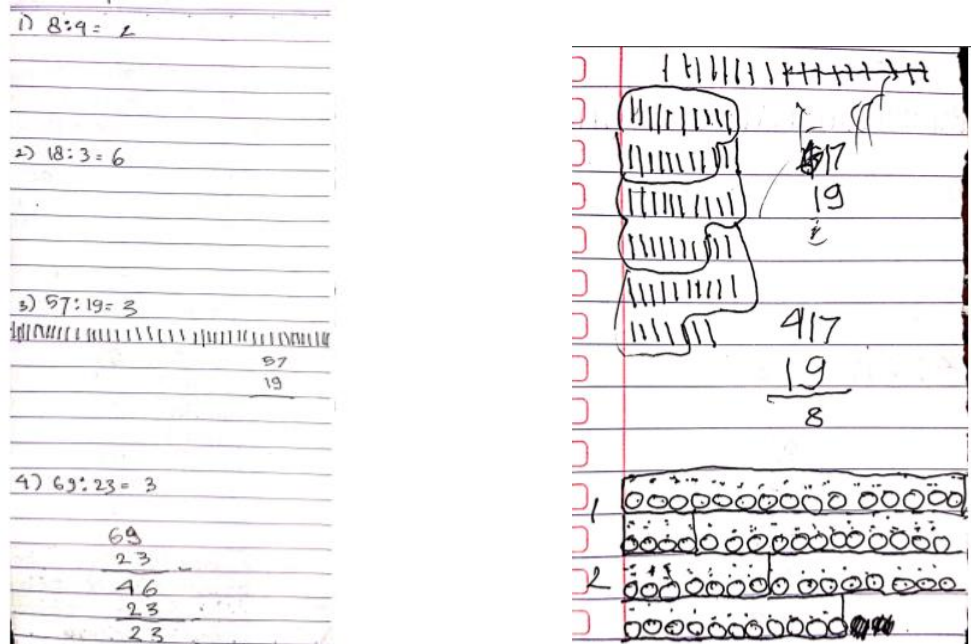 1) 8:4 = 2
2) 18:3 = 6
3) 57:19 = 3
57
19
4) 69:23 = 3
69
23
46
23
23
17
19
417
19
8
1
2